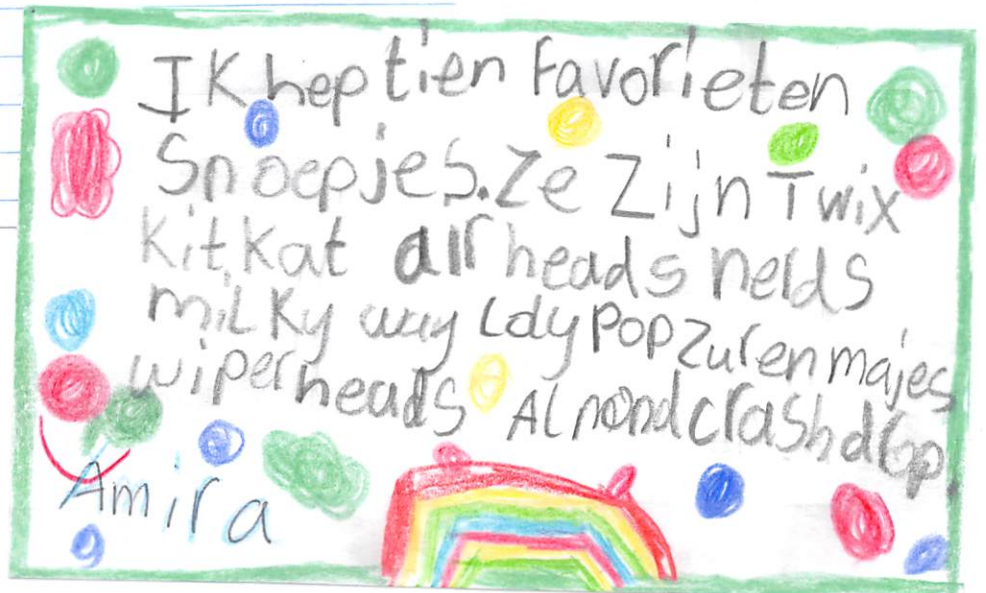 Ik hep tien favorieten
Snoepjes. Ze zijn Twix
kitkat airheads nelds
milky way Ldy Pop zuren majes
wiperheads Almond crash
Amira